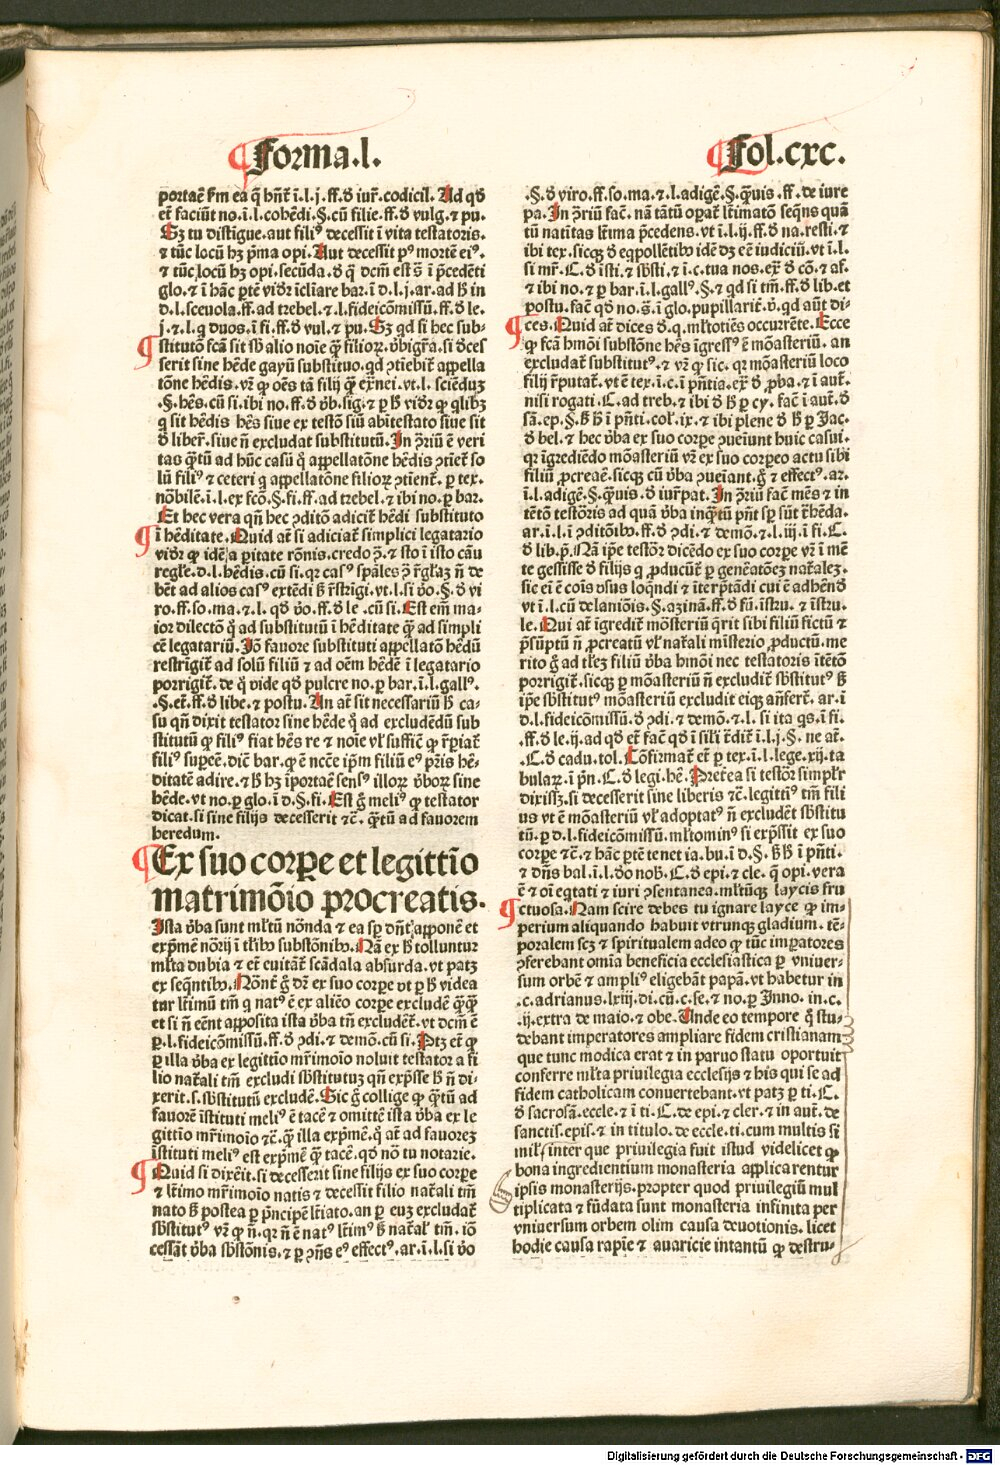 Forma.l.
Fol.cxc.
portaē ẜm ea q̄ hn̄t ī.l.j.ff.ð iur̄.codicil. Ad qð
et̄ faciūt no.ī.l.cohēdi.§.cū filie.ff.ð vulg.⁊ pu.
Sꝫ tu distīgue.aut filiꝰ decessit ī vita testatoris.
⁊ tūc locū hꝫ p̄ma opi. Aut decessit pꝰ mortē eiꝰ.
⁊ tūc locū hꝫ opi.secūda.
glo.⁊ ī hāc ꝑtē vidr̄ īcliare bar.ī d.l.j.ar.ad h̄ in
d.l.sceuola.ff.ad trebel.⁊.l.fideicōmissū.ff.ð le.
j.⁊.l.q duos.ī fi.ff.ð vul.⁊ pu. Sꝫ qd si hec sub-
stitutō fcā sit sb̄ alio noīe
serit sine hēde gayū substituo.
tōne hēdis.
.§.hēs.cū si.ibi no.ff.ð v̄b.sig.
q sit hēdis hēs siue ex testō siū abītestato siue sit
ð liber̄.siue n̄ excludat substitutū. In ꝓriū ē veri
tas q̄tū ad hūc casū q̄ appellatōne hēdis ꝯtiet̄ so
lū filiꝰ ⁊ ceteri q appellatōne filioꝝ ꝯtient̄.ꝑ tex.
nōbilē.ī.l.ex fcō.§.fi.ff.ad trebel.⁊ ibi no.ꝑ bar.
Et hec vera qn̄ hec ꝯditō adicit̄ hēdi substituto
ī hēditate. Quid at̄ si adiciat̄ simplici legatario
vidr̄ ꝙ idē a ꝑitate rōnis.credo ꝯ̄.⁊ sto ī isto cāu
regle̅.d.l.hēdis.cū si.
bēt ad alios casꝰ extēdi
ro.ff.so.ma.⁊.l. qð v̄o.ff.ð le .cū si. Est em̄ ma-
ior dilectō q̄ ad substitutū ī hēditate q̄ ad simpli
cē legatariū. Iō fauore substituti appellatō hēdū
restrīgit̄ ad solū filiū ⁊ ad oēm hēdē ī legatario
porrigit̄.de q̄ vide qð pulcre no.ꝑ bar.ī.l.gallꝰ.
.§.et̄.ff.ð libe.⁊ postu. An at̄ sit necessariū h̄ ca-
su qn̄ dixit testator sine hēde q̄ ad excludēdū sub
stitutū ꝙ filiꝰ fiat hēs re ⁊ noīe vl̄ sufficē
filiꝰ supcē.dic̄ bar.ꝙ ē necc̄e ip̄m filiū eꝰ pr̄is hē-
ditatē adire.⁊ h̄ hꝫ īportaē sensꝰ illoꝝ v̄boꝝ sine
hēde.vt no.ꝑ glo.ī d.§.fi. Est ḡ meliꝰ ꝙ testator
dicat.si sine filijs decesserit ⁊c̄.q̄tū ad fauorem
heredum.
Ex suo corꝑe et legittīo
matrimōio procreatis.
Ista v̄ba sunt ml̄tū nōnda ⁊ ea sꝑ dn̄t apponē et
exp̄mē nōrij ī tl̄ibꝰ substōnibꝰ. Nā ex h̄ tolluntur
ml̄ta dubia ⁊ et̄ euitāt̄ scādala absurda.vt patꝫ
ex seqn̄tibꝰ. Nōnt̄ ḡ dr̄ ex suo corꝑe vt ꝑ h̄ videa
tur lr̄timū tm̄ q natꝰ ē ex aliēo corꝑe excludē q̄ꝙ
et si n̄ eēnt apposita ista v̄ba tn̄ excludēt̄.vt dcm̄ ē
ꝑ.l.fideicōmissū.ff.ð ꝯdi.⁊ demō.cū si. Ptꝫ et̄ ꝙ
ꝑ illa v̄ba ex legittīo mr̄imoīo noluit testator a fi
lio nat̄ali tm̄ excludi sb̄stitutuꝫ qn̄ exp̄sse h̄ n̄ di-
xerit.s.sb̄stitutū excludē. Sic ḡ collige ꝙ q̄tū ad
fauorē īstituti meliꝰ ē tacē ⁊ omittē ista v̄ba ex le
gittīo mr̄imoīo ⁊c̄.q̄ illa exp̄mē.q̄ at̄ ad fauoreꝫ
īstituti meliꝰ est exp̄mē q̄ tacē.qð nō tu notarie.
Quid si dixēit.si decesserit sine filijs ex suo corꝑe
⁊ lr̄imo mr̄imoīo natis ⁊ decessit filio nat̄ali tm̄
nato s̄ postea ꝑ p̄ncipē lr̄iato.an ꝑ euꝫ excludat̄
sb̄stitutꝰ vr̄ ꝙ n̄.qr n̄ ē natꝰ lr̄imꝰ s̄ nat̄al̄ tm̄.iō
cessāt v̄ba sb̄stōnis.⁊ ꝑ ꝯn̄s eꝰ effectꝰ.ar.ī.l.si v̄o
.§.ð viro.ff.so.ma.⁊.l.adigē.§.q̄uis.ff.de iure
pa. In ꝯriū fac̄. nā tātū opat̄ lr̄imatō seqn̄s quā
tū natītas lr̄ima p̄cedens.vt ī.l.ij.ff.ð na.resti.⁊
ibi tex.sicqꝫ ð eqpollētibꝰ idē dꝫ eē iudiciū.vt ī.l.
si mr̄.C.ð īsti.⁊ sb̄sti.⁊ ī.c.tua nos.ex̄ ð cō.⁊ af.
⁊ ibi no.⁊ ꝑ bar.ī.l.gallꝰ.§.⁊ qd si tm̄.ff.ð lib.et
postu. fac̄ qð no.g̅.ī glo.pupillarit̄.v̄.qd aūt di-
ces. Quid at̄ dices ð.q.ml̄totiēs occurrēte. Ecce
ꝙ fcā hmōi substōne hēs īgressꝰ ē mōasteriū. an
excludat̄ substitutꝰ.⁊ vr̄ ꝙ sic.qr mōasteriū loco
filij r̄putat̄.vt ē tex.ī.c.ī p̄ntia.ex̄ ð ꝓba.⁊ ī aut̄.
nisi rogati.C.ad treb.⁊ ibi ð h̄ ꝑ cy. fac̄ ī aut̄.ð
sā.ep.§.
ð bel.⁊ hec v̄ba ex suo corꝑe ꝯueīunt huic casui.
qr īgrediēdo mōasteriū vr̄ ex suo corꝑeo actu sibi
filiū ꝓcreaē.sicqꝫ cū v̄ba ꝯueīant.ḡ ⁊ effectꝰ.ar.
ī.l.adigē.§.q̄uis.ð iur̄pat. In ꝯriū fac̄ mēs ⁊ in
tētō testōris ad quā v̄ba
ar.ī.l.ī ꝯditōibꝰ.ff.ð ꝯdi.⁊ demō.⁊.l.iij.ī fi.C.
ð lib.p̄. Nā ip̄e testōr dicēdo ex suo corꝑe vr̄ ī mē
te gessisse ð filijs q ꝓducūt̄ ꝑ gen̄eatōeꝫ nat̄aleꝫ.
sic eī ē coīs vsus loqn̄di ⁊ īterp̄tādi cui ē adhēnð
vt ī.l.cū delaniōis.§.azinā.ff.ð fū.īstru.⁊ īstru.
le. Qui at̄ īgredit̄ mōsteriū q̄rit sibi filiū fictū ⁊
p̄sūptū n̄ ꝓcreatū vl̄ nat̄ali misterio ꝓductū.me
rito ḡ ad tl̄eꝫ filiū v̄ba hmōi nec testatoris ītētō
porrigit̄.sicqꝫ ꝑ mōasteriū n̄ excludit̄ sb̄stitutꝰ s̄
ip̄e sb̄stitutꝰ mōasteriū excludit eiqꝫ an̄fert̄. ar.ī
d.l.fideicōmissū.ð ꝯdi.⁊ demō.⁊.l. si ita qs.ī fi.
.ff.ð le.ij.ad qð et̄ fac̄ qð ī sil̄i
.C.ð cadu.tol. Cōfirmat̄ et̄ ꝑ tex.ī.l.lege.xij.ta
bulaꝝ.ī pn̄.C.ð legi.hē. Pret̄ea si testōr simpl̄r
dixissꝫ.si decesserit sine liberis ⁊c̄.legittiꝰ tm̄ fili
us vt ē mōasteriū vl̄ adoptatꝰ n̄ excludēt sb̄stitu
tū.ꝑ d.l.fideicōmissū.ml̄tominꝰ si exp̄ssit ex suo
corꝑe ⁊c̄.⁊ hāc ꝑtē tenet ia.bu.ī d.§.
⁊ dn̄s bal.ī.l.ðo nob̄.C.ð epi.⁊ cle.q̄ opi.vera
ē ⁊ oī eqtati ⁊ iuri ꝯsentanea.ml̄tūqꝫ laycis fru
ctuosa. Nam scire debes tu ignare layce ꝙ im-
perium aliquando habuit vtrunqꝫ gladium. tē-
poralem scꝫ ⁊ spiritualem adeo ꝙ tūc imꝑatores
ꝯferebant omīa beneficia ecclesiastica ꝑ vniuer-
sum orbē ⁊ ampliꝰ eligebāt papā.vt habetur in
.c.adrianus.lxiij.di.cū.c.se.⁊ no.ꝑ Inno.in.c.
.ij.extra de maio.⁊ obe. Unde eo tempore q̄ stu-
debant imperatores ampliare fidem cristianam
que tunc modica erat ⁊ in paruo statu oportuit
conferre ml̄ta priuilegia ecclesijs ⁊ his qui se ad
fidem catholicam conuertebant.vt patꝫ ꝑ ti.C.
ð sacrosā.eccle.⁊ ī ti.C.de epi.⁊ cler.⁊ in aut̄.de
sanctis.epis.⁊ in titulo.de eccle.ti.cum multis si
mil̄.inter que priuilegia fuit istud videlicet ꝙ
bona ingredientium monasteria applicarentur
ipsis monasterijs.propter quod priuilegiū mul
tiplicata ⁊ fūdata sunt monasteria infinita per
vniuersum orbem olim causa deuotionis. licet
hodie causa rapīe ⁊ auaricie intantū ꝙ destru-
Digitalisierung gefördert durch die Deutsche Forschungsgemeinschaft - DFG